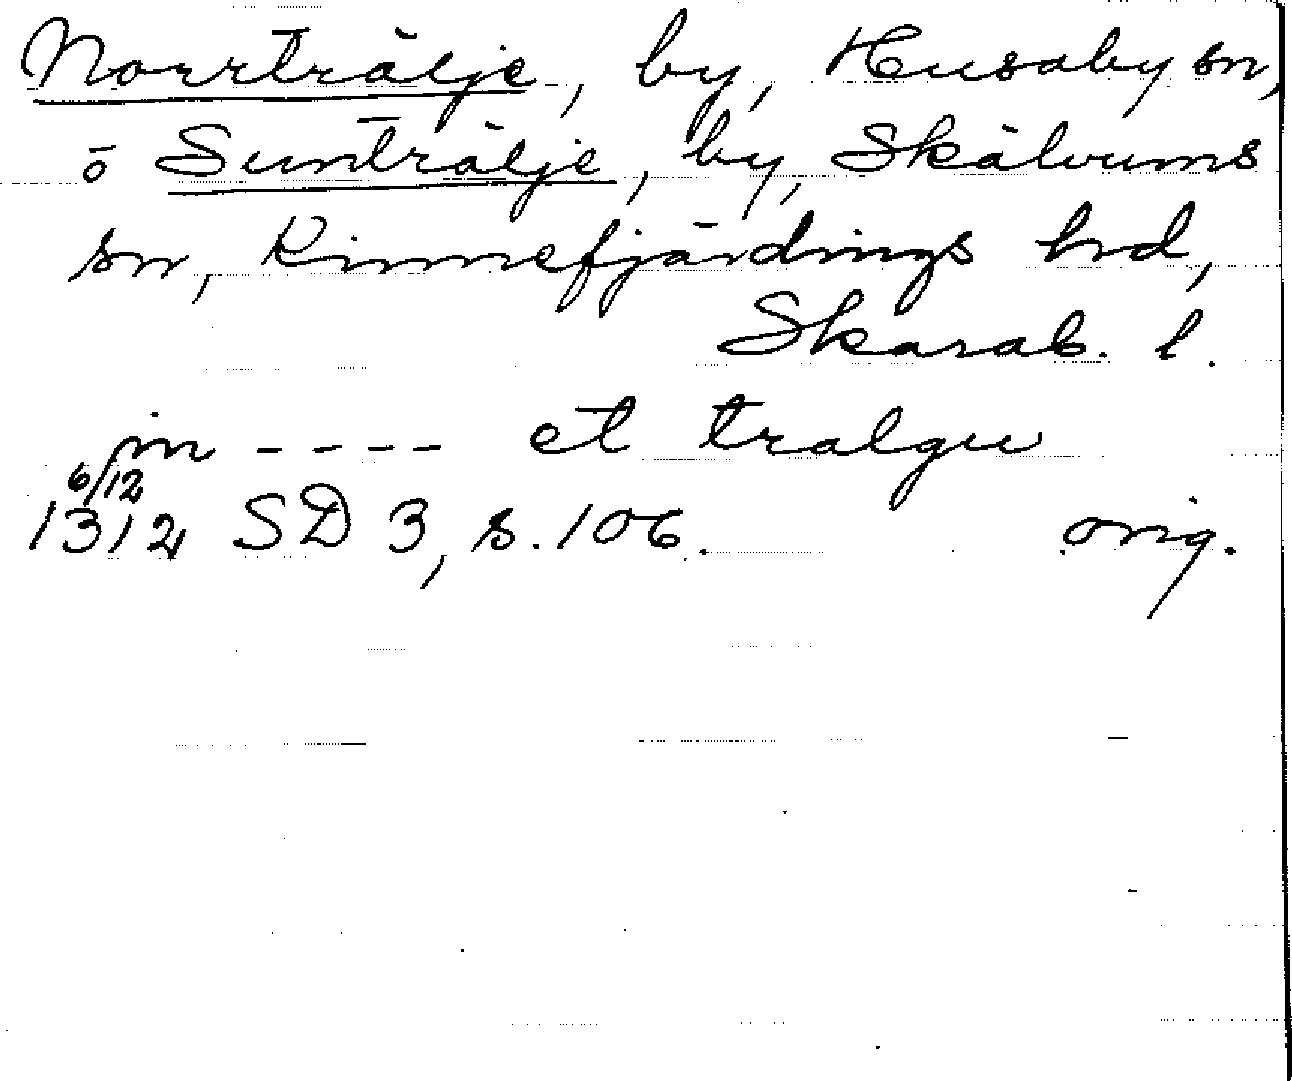 Norrträlje, by, Husaby sn,
o Sunträlje, by, Skälvums
sn, Kinnefjärdings hrd,
Skarab. l.
in ---- et tralgu
6/12
1312 SD 3, s. 106. orig.